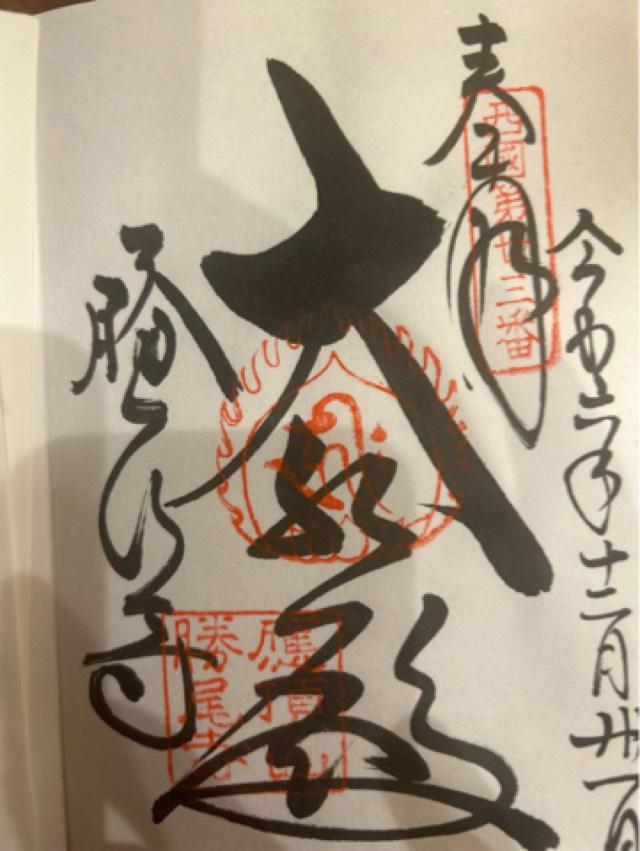 奉拝
西國第廿三番
令和六年十二月卅一日
大悲殿
應頂山
勝尾寺
勝尾寺